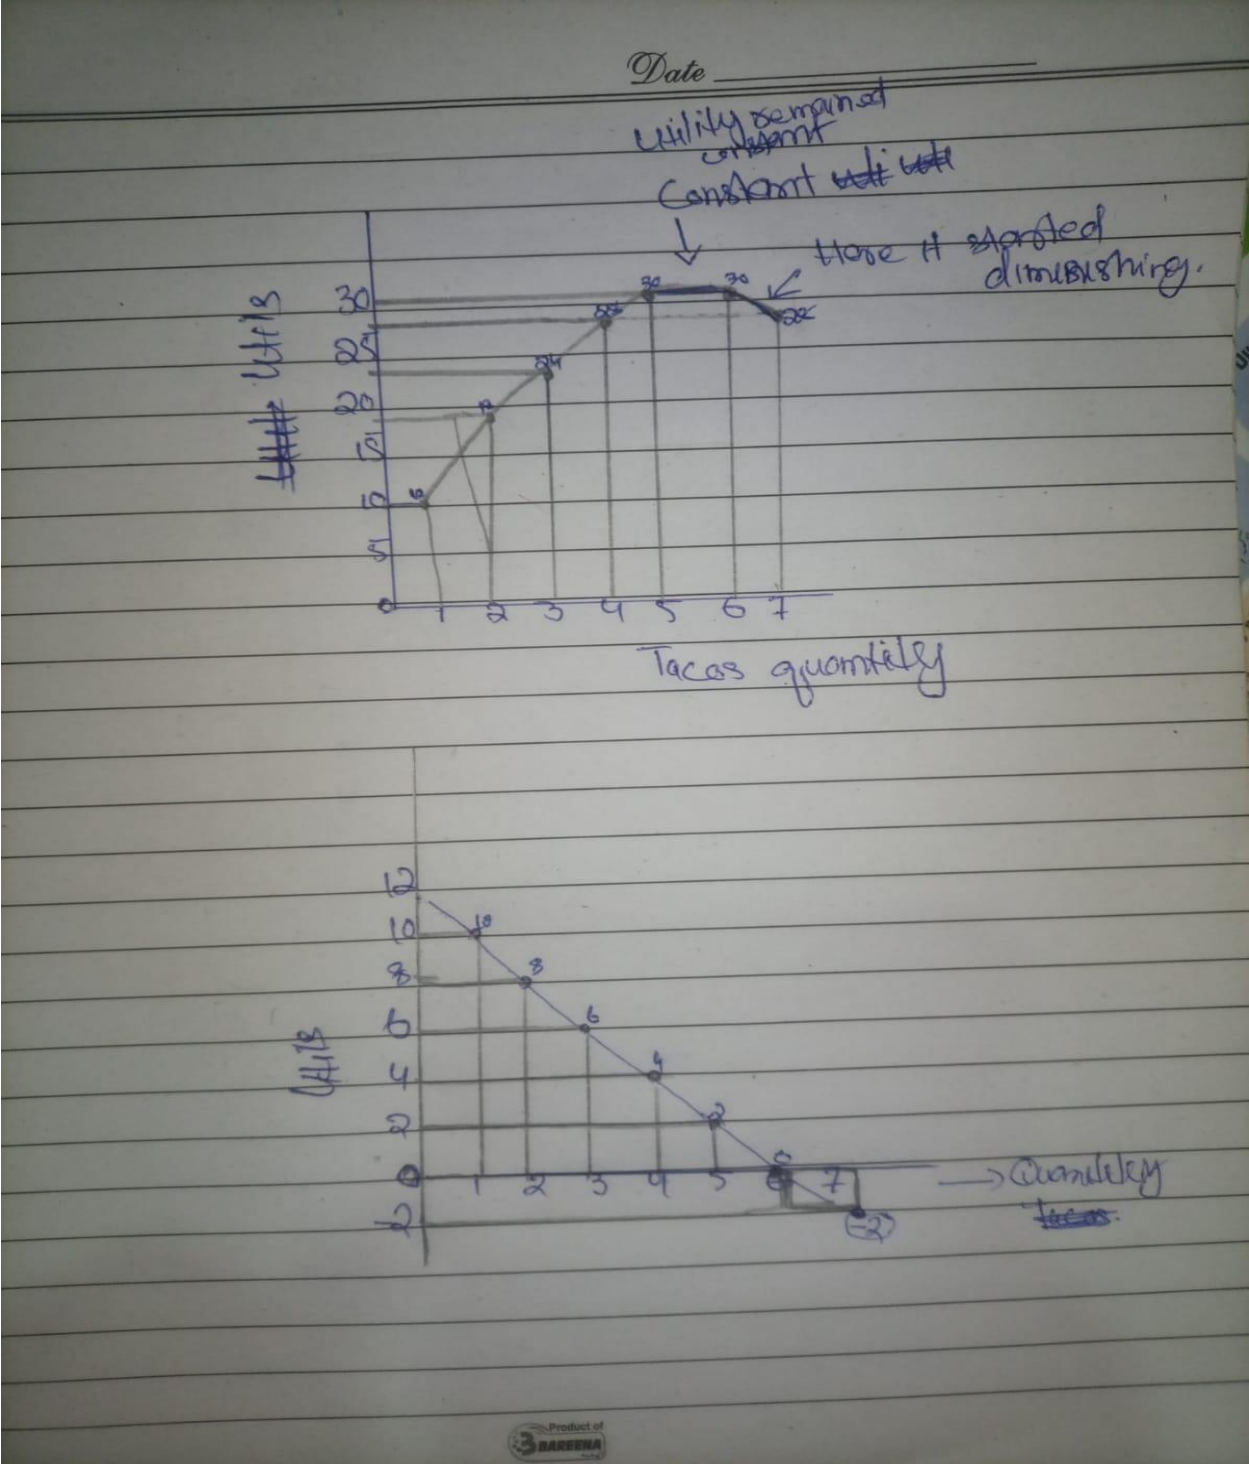 Date
Utility remained
constant
Constant
Here it started
diminishing.
Utils
30
25
20
15
10
5
0
10
18
24
28
30
30
28
1 2 3 4 5 6 7
Tacos quantity
12
10
8
6
4
2
0
-2
Utils
10
8
6
4
2
0
(-2)
1 2 3 4 5 6 7
→ Quantity
Tacos.
Product of
BAREENA